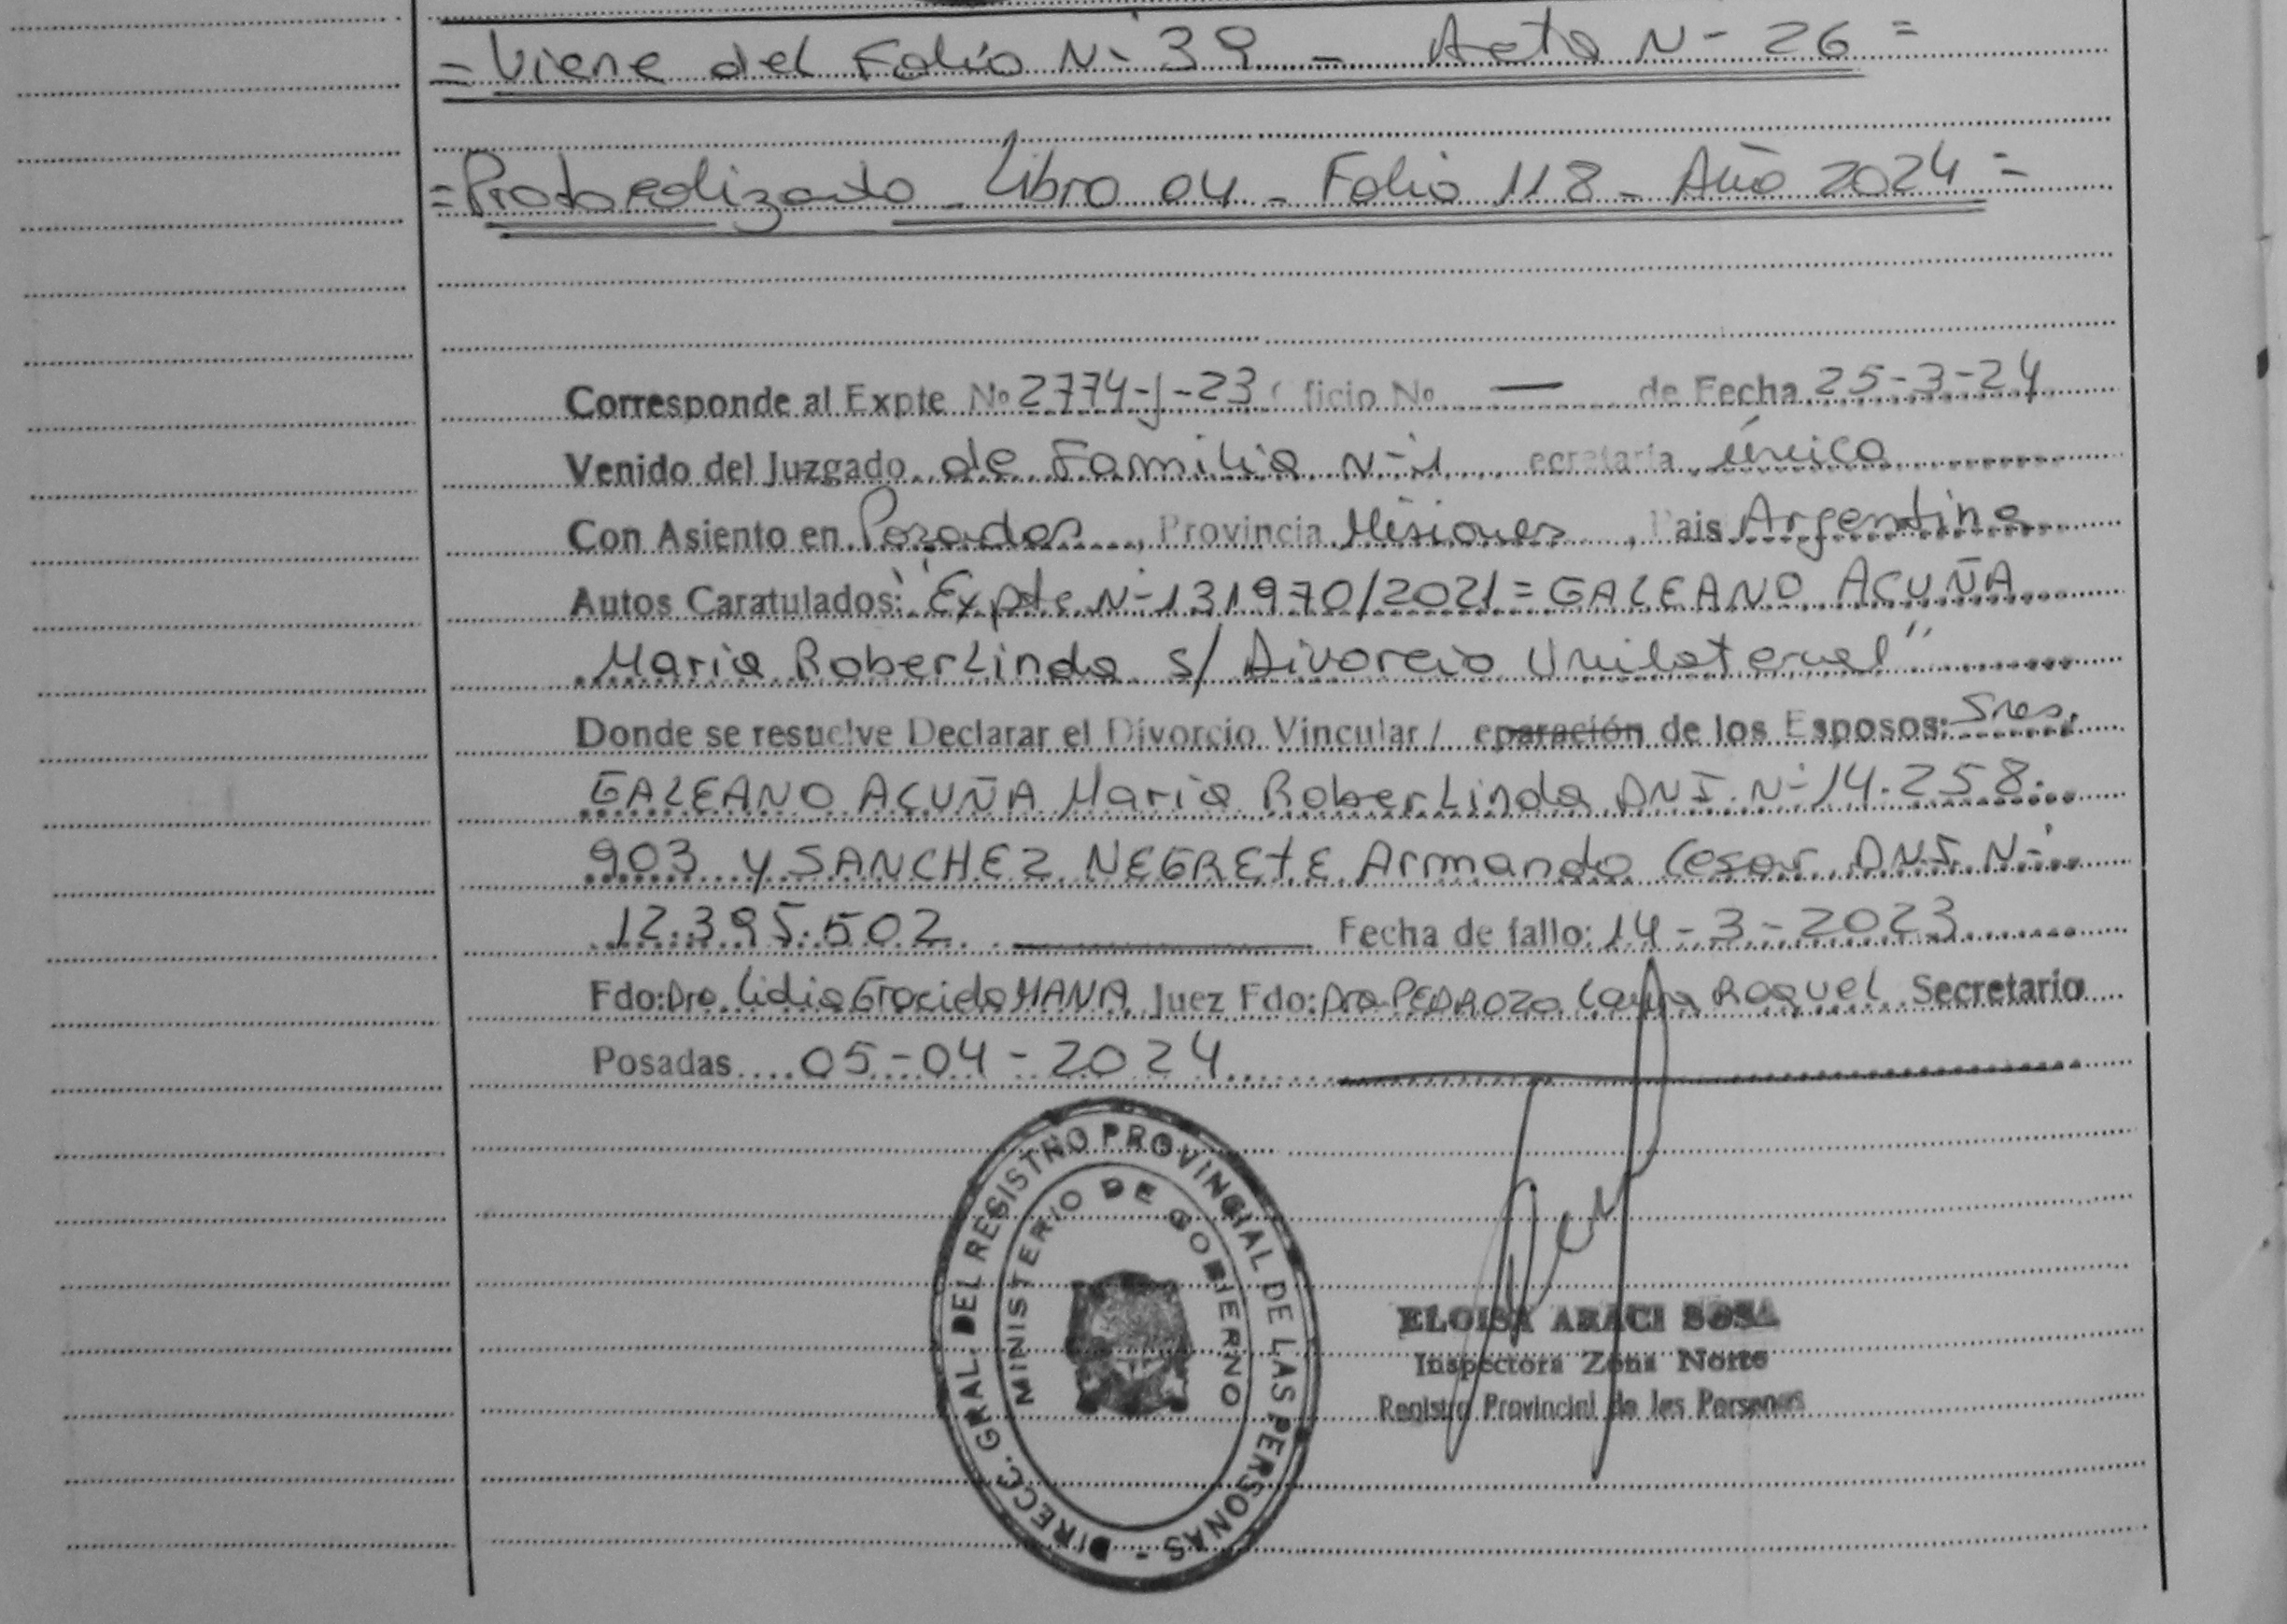 = Viene del Folio N- 39 - Acta N- 26 =
= Protocolizado - Libro 04 - Folio 118 - Año 2024 =
Corresponde al Expte No 2774-J-23 ficio No — de Fecha 25-3-24
Venido del Juzgado de Familia N-1 ecretaria única
Con Asiento en Posadas, Provincia Misiones, Pais Argentina
Autos Caratulados: "Expte N-131970/2021= GALEANO ACUÑA
Maria RoberLinda s/ Divorcio Unilateral"
Donde se resuelve Declarar el Divorcio Vincular / eparación de los Esposos: Sres.
GALEANO ACUÑA Maria RoberLinda DNI. N-14.258.
903 y SANCHEZ NEGRETE Armando Cesar DNI. N-
12.395.502 Fecha de fallo: 14-3-2023
Fdo: Dra. Lidia Graciela MANA Juez Fdo: Dra PEDROZO Laura Raquel Secretario
Posadas 05-04-2024
DIRECC. GRAL. DEL REGISTRO PROVINCIAL DE LAS PERSONAS -
MINISTERIO DE GOBIERNO
ELOISA ARACI SOSA
Inspectora Zona Norte
Registro Provincial de las Personas